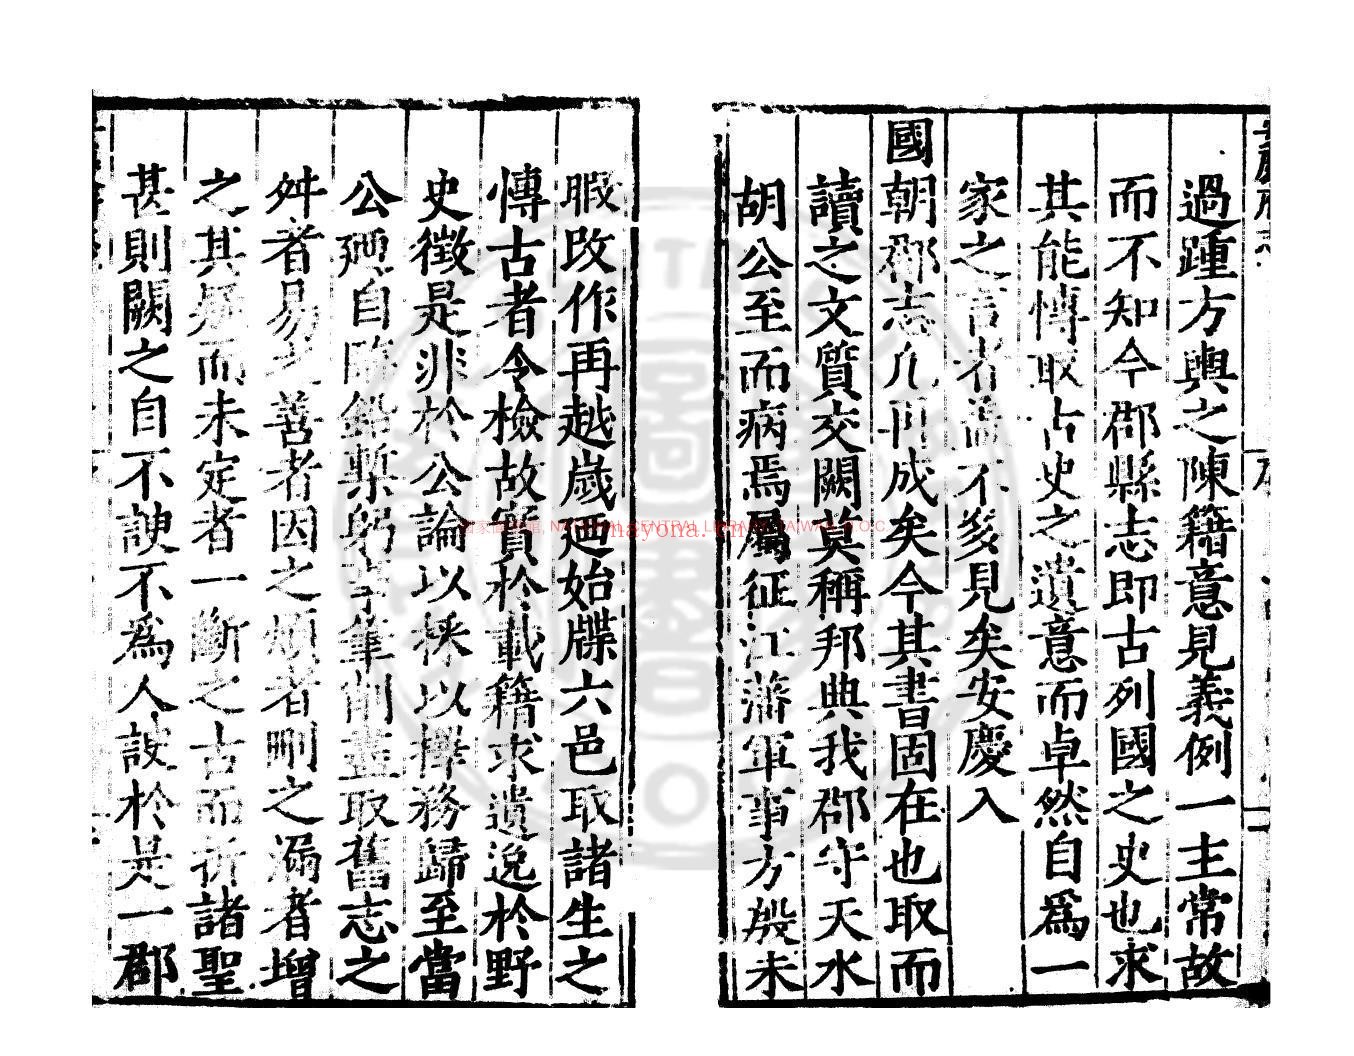 過踵方輿之陳籍意見義例一主常故
而不知今郡縣志即古列國之史也求
其能慱取古史之遺意而卓然自爲一
家之言者葢不多見矣安慶入
國朝郡志凢再成矣今其書固在也取而
讀之文質交闕莫稱邦典我郡守天水
胡公至而病焉屬征江藩軍事方殷未
暇攺作再越嵗廼始牒六邑取諸生之
慱古者令檢故實於載籍求遺逸於野
史徵是非於公論以採以擇務歸至當
公廼自臨鉛槧躬筆削盡取舊志之
舛者易之善者因之煩者刪之漏者增
之其疑而未定者一斷之古而折諸聖
甚則闕之自不諛不爲人諛於是一郡